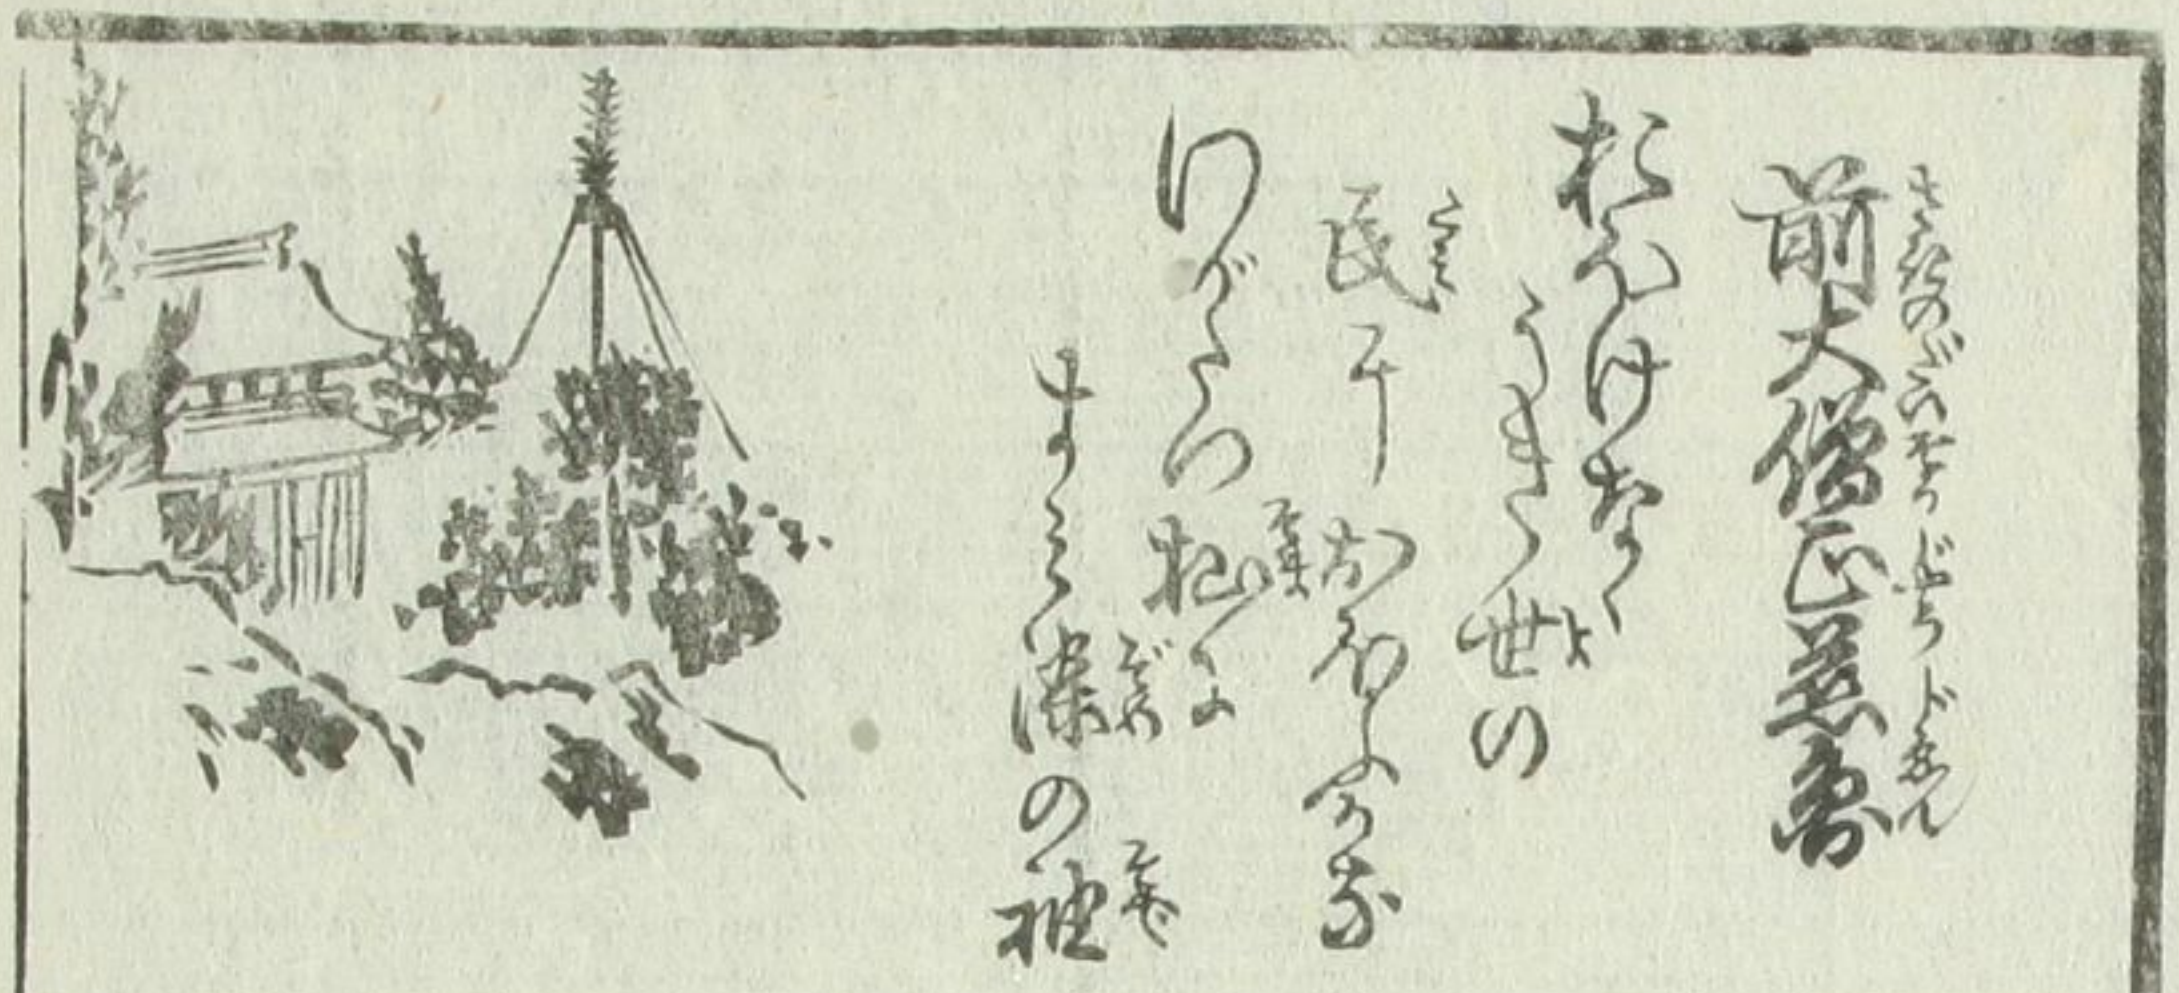 さきのだいそうじやうじゑん
前大僧正慈圓
おほけなく
うき世の
民におほふかな
わがたつ杣に
すみ染の袖